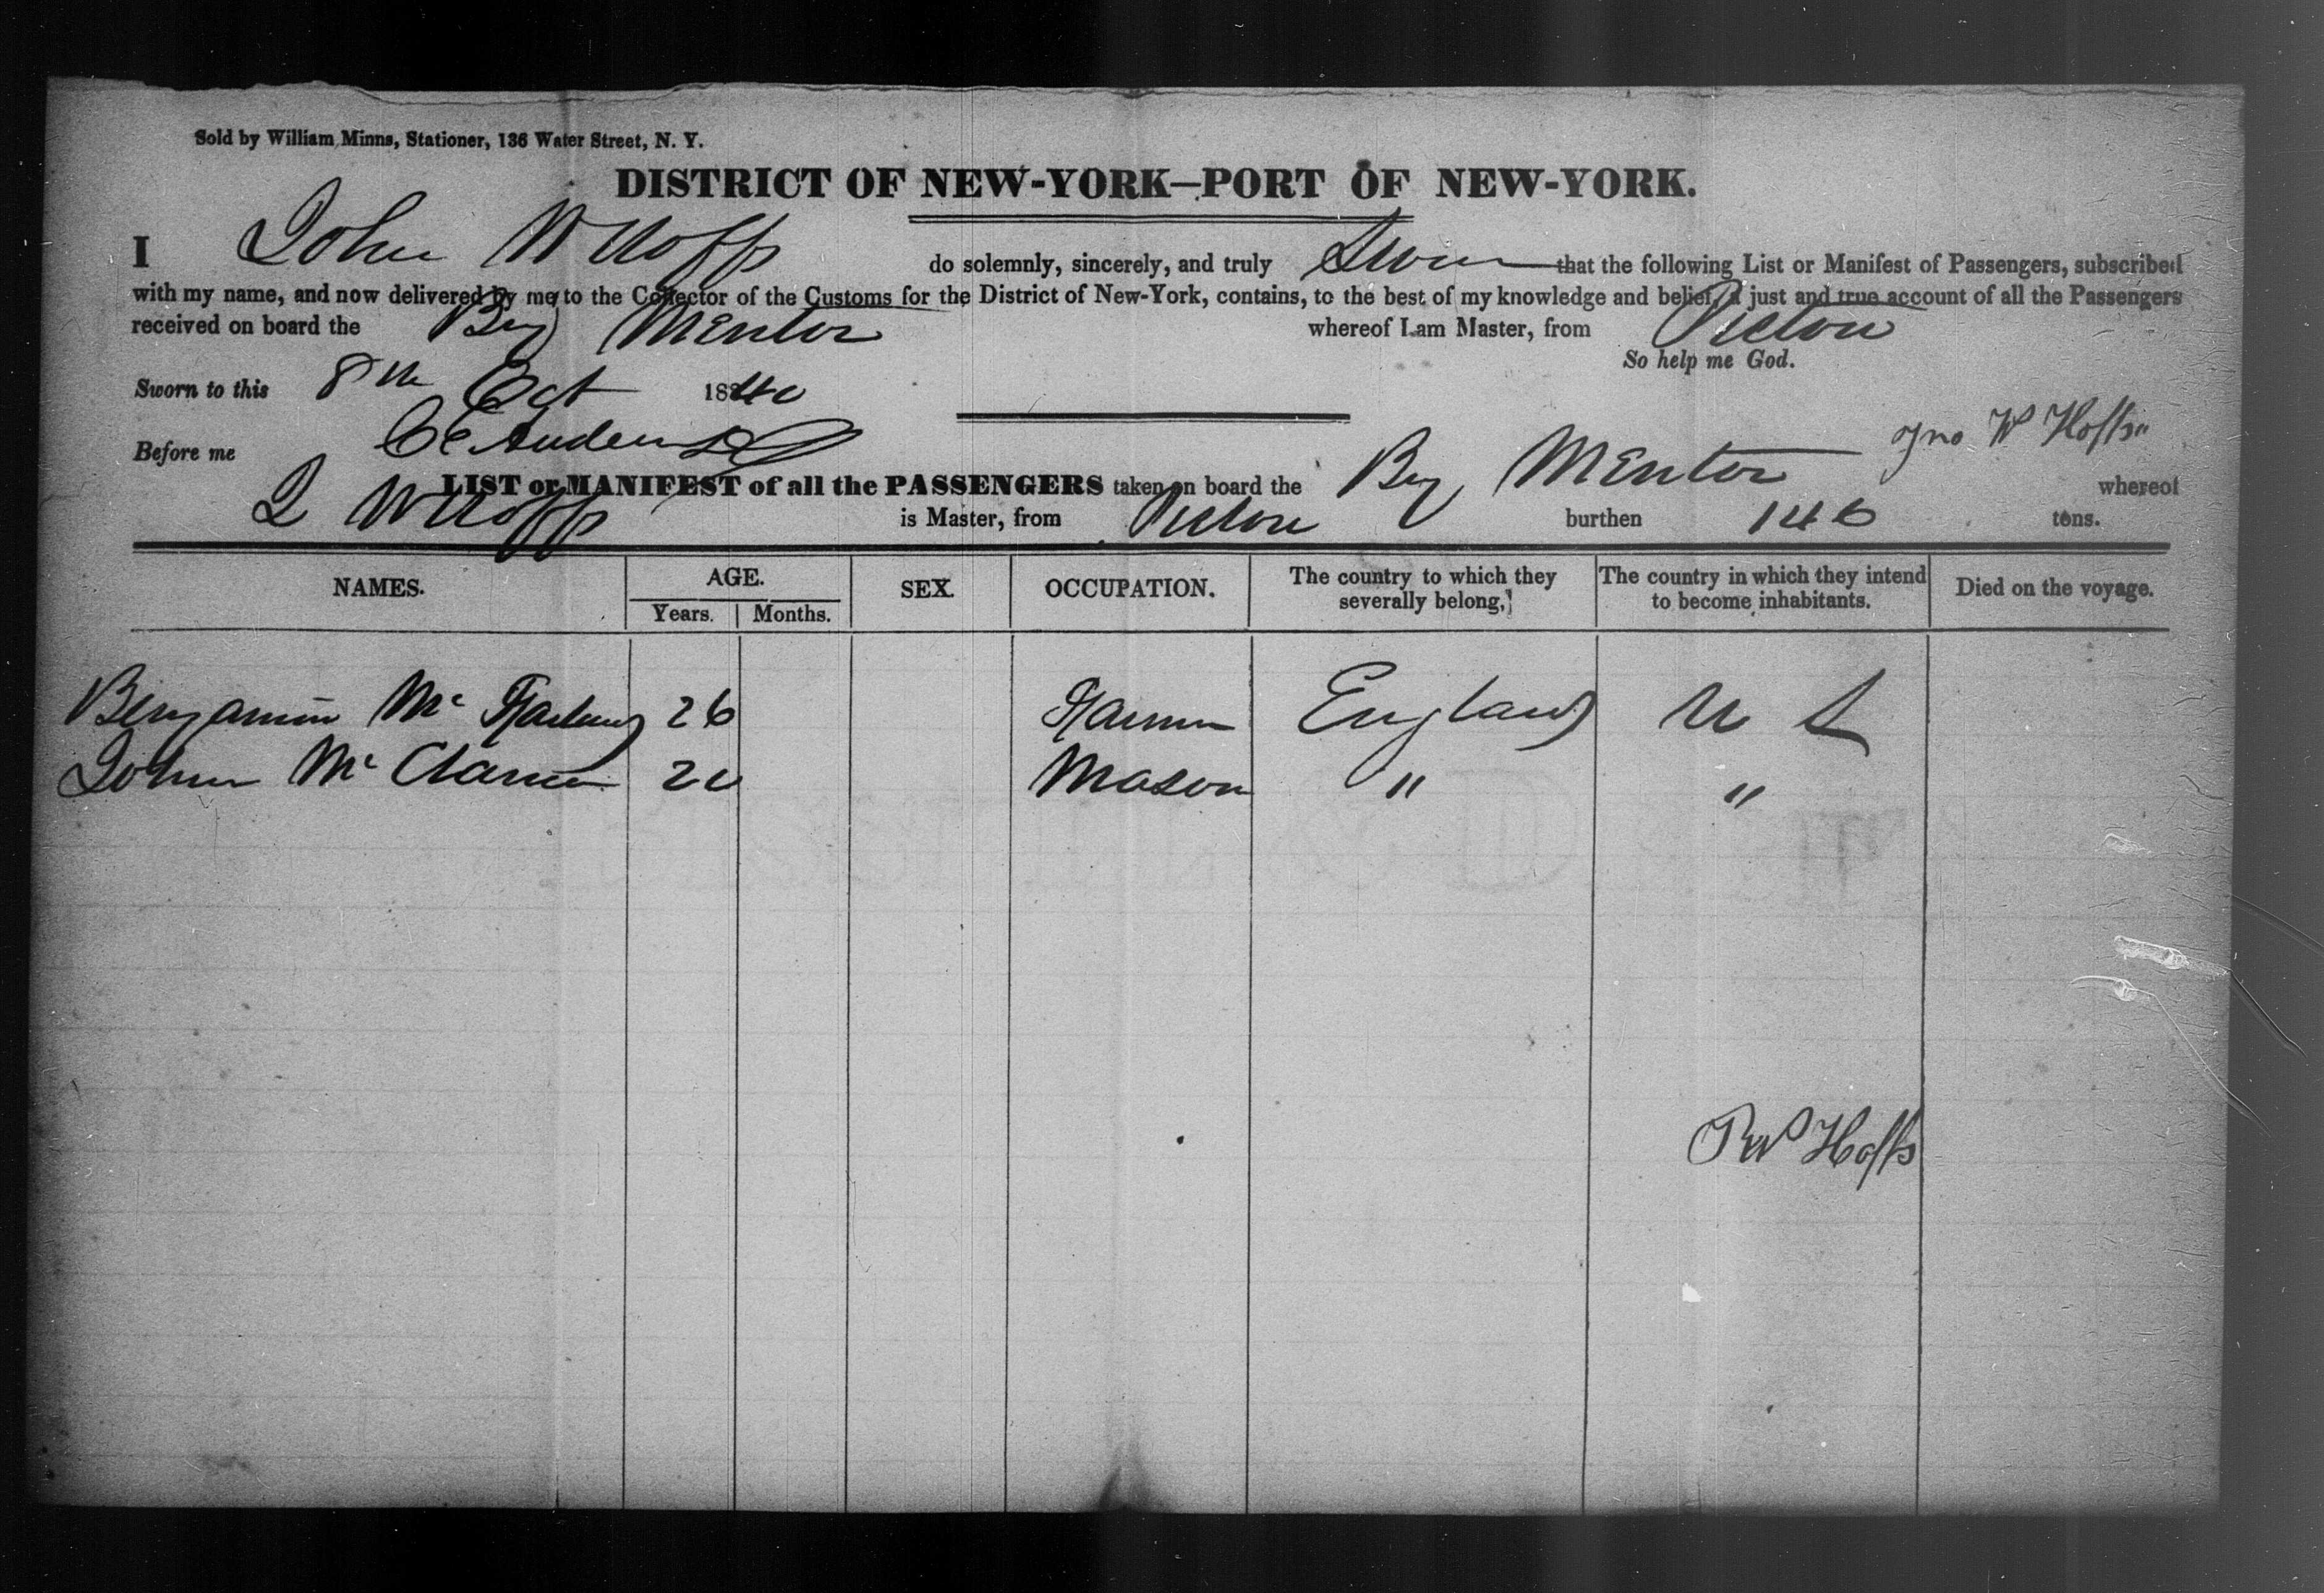 Sold by William Minns, Stationer, 136 Water Street, N. Y.
DISTRICT OF NEW-YORK—PORT OF NEW-YORK.
I John W do solemnly, sincerely, and truly Swear that the following List or Manifest of Passengers, subscribed
with my name, and now delivered by me to the Collector of the Customs for the District of New-York, contains, to the best of my knowledge and belief, a just and true account of all the Passengers
received on board the Brig Mentor whereof I am Master, from Pictou
So help me God.
Sworn to this 8th Oct 1840
Before me
Jno W
LIST or MANIFEST of all the PASSENGERS taken on board the Brig Mentor whereof
J W is Master, from Pictou burthen 146 tons.
NAMES. AGE. SEX. OCCUPATION. The country to which they severally belong, The country in which they intend to become inhabitants. Died on the voyage.
Years. Months.
Benjamin Mc 26 Farmer England U S
John Mc 20 Mason " "